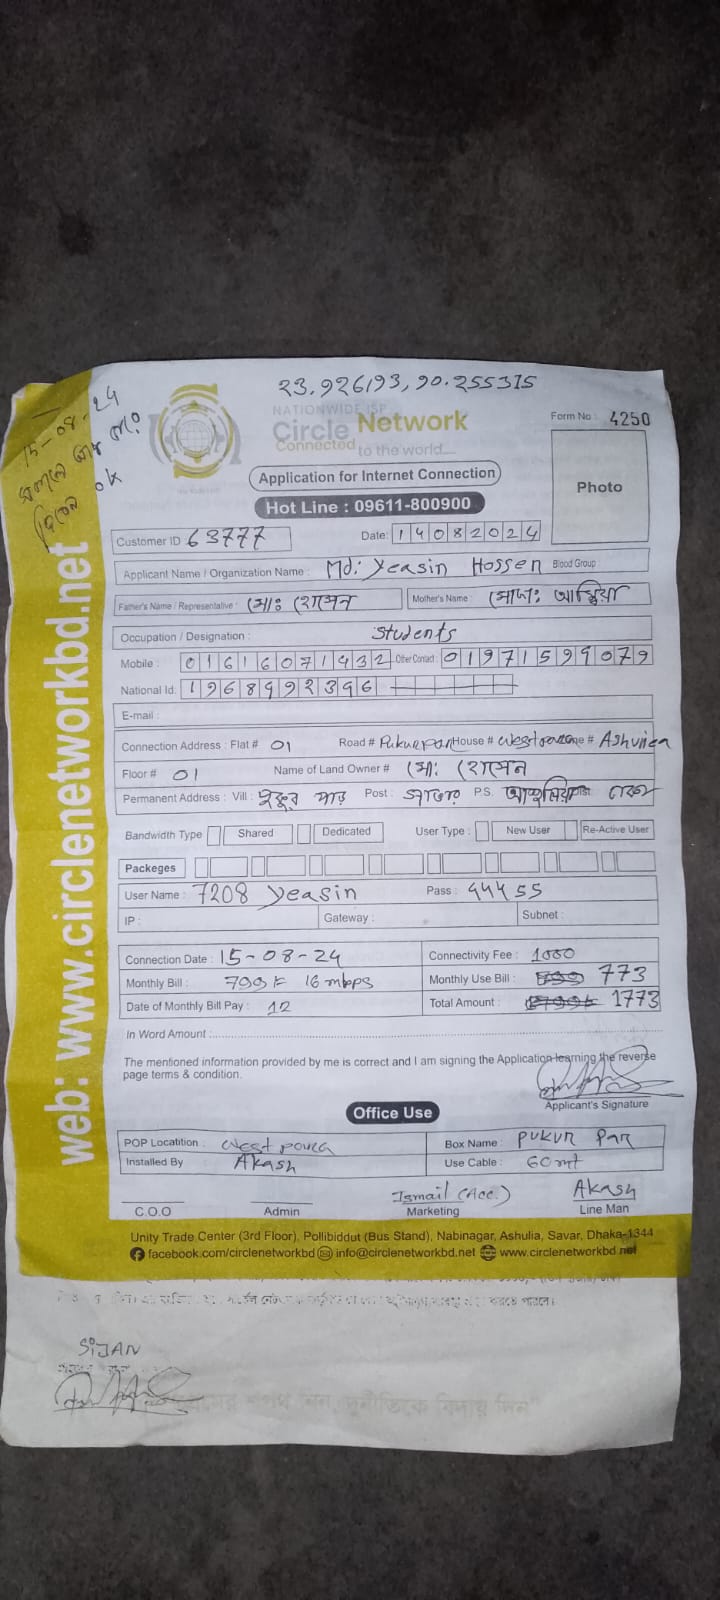 23.926193, 90.255315
15-08-24
ok
NATIONWIDE ISP
Circle Network
Connected to the world....
Form No : 4250
Application for Internet Connection
Photo
Hot Line : 09611-800900
Customer ID 63777 Date: 14082024
Applicant Name / Organization Name : Md: Yeasin Hossen Blood Group
Father's Name / Representative : মোঃ হোসেন Mother's Name : মোসাঃ
Occupation / Designation : Students
Mobile : 01616071432 Other Contact : 01971599079
National Id: 1968992396
E-mail :
Connection Address : Flat # 01 Road # Pukurpar House # Westpara # Ashulia
Floor # 01 Name of Land Owner # মোঃ হোসেন
Permanent Address : Vill : পুকুর পার Post : সাভার P.S. আশুলিয়া ঢাকা
Bandwidth Type Shared Dedicated User Type : New User Re-Active User
Packeges
User Name : 7208 Yeasin Pass : 44455
IP : Gateway : Subnet :
Connection Date : 15-08-24 Connectivity Fee : 1000
Monthly Bill : 799/= 16 mbps Monthly Use Bill : 773
Date of Monthly Bill Pay : 12 Total Amount : 1773
In Word Amount :
The mentioned information provided by me is correct and I am signing the Application learning the reverse
page terms & condition.
Applicant's Signature
Office Use
POP Locatition : West para Box Name : Pukur Par
Installed By Akash Use Cable : 60 mt
Ismail (Acc.) Akash
C.O.O Admin Marketing Line Man
Unity Trade Center (3rd Floor), Pollibiddut (Bus Stand), Nabinagar, Ashulia, Savar, Dhaka-1344
facebook.com/circlenetworkbd info@circlenetworkbd.net www.circlenetworkbd.net
web: www.circlenetworkbd.net
SIJAN